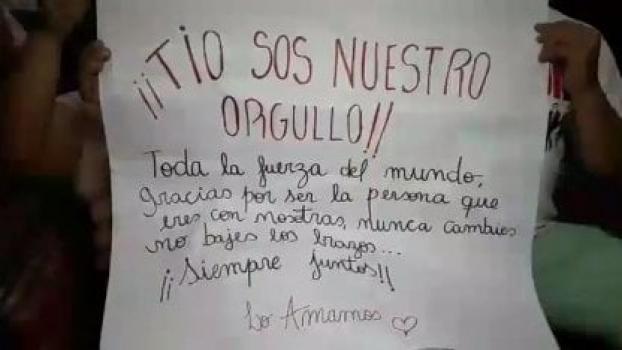 ¡¡TIO SOS NUESTRO
ORGULLO!!
Toda la fuerza del mundo,
gracias por ser la persona que
eres con nosotras, nunca cambies
no bajes los brazos...
¡¡Siempre juntos!!
Lo Amamos